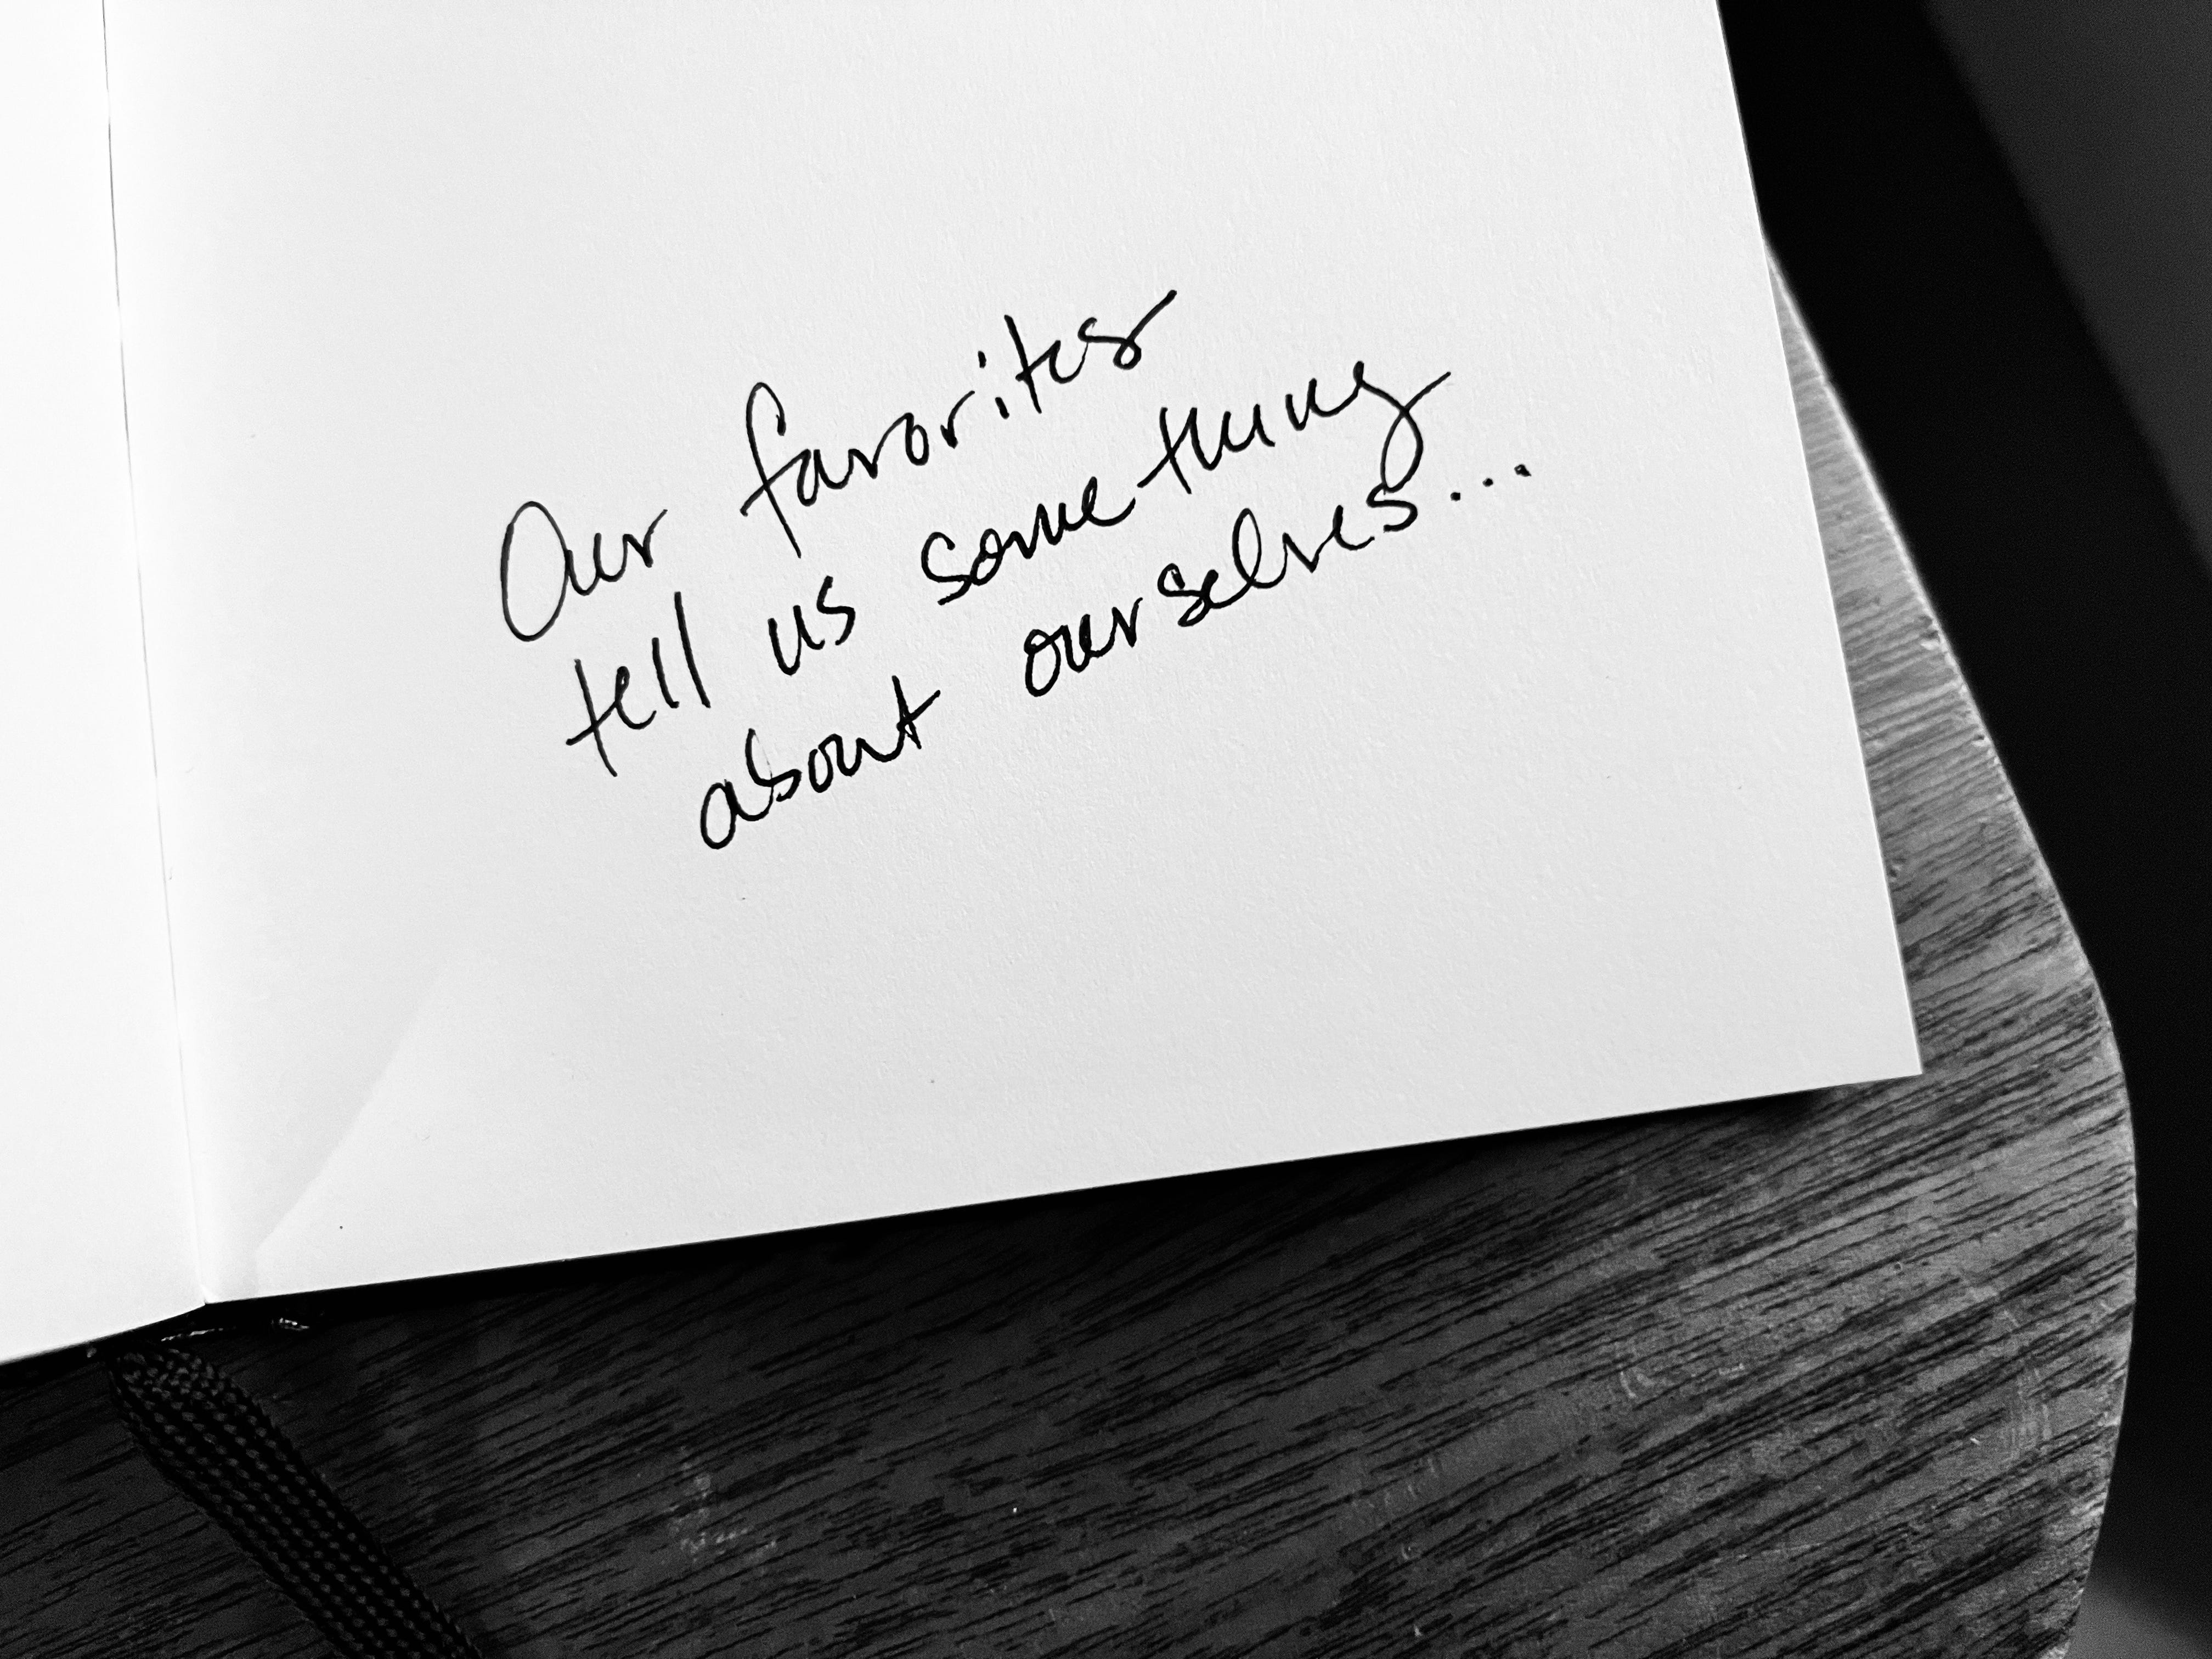 Our favorites
tell us something
about ourselves...